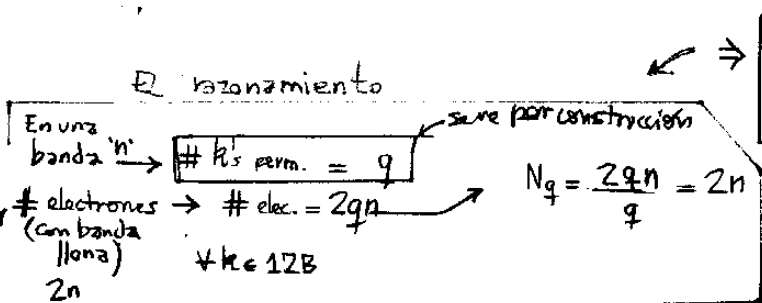 El razonamiento
⇒
En una
banda 'n' → # k's perm. = q
se ve por construcción
# electrones → # elec. = 2qn
(con banda
llena)
2n
∀ k ∈ 1ZB
N_q = 2qn / q = 2n